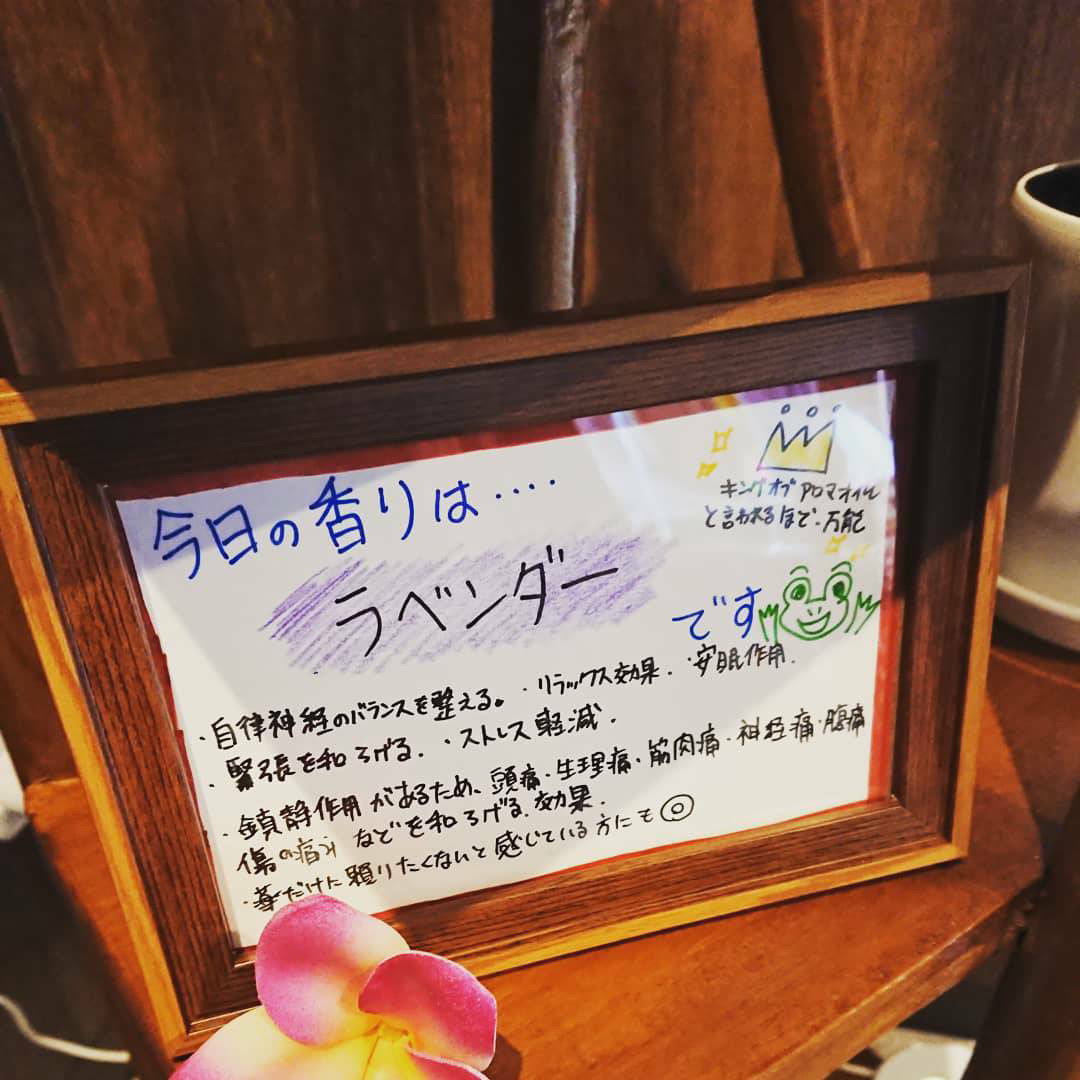 今日の香りは‥‥
キングオブアロマオイル
と言われるほど、万能
ラベンダー
です
・自律神経のバランスを整える。・リラックス効果.・安眠作用.
・緊張を和らげる.・ストレス軽減.
・鎮静作用があるため、頭痛・生理痛・筋肉痛・神経痛・腹痛
傷の痛みなどを和らげる効果.
・薬だけに頼りたくないと感じている方にも◎